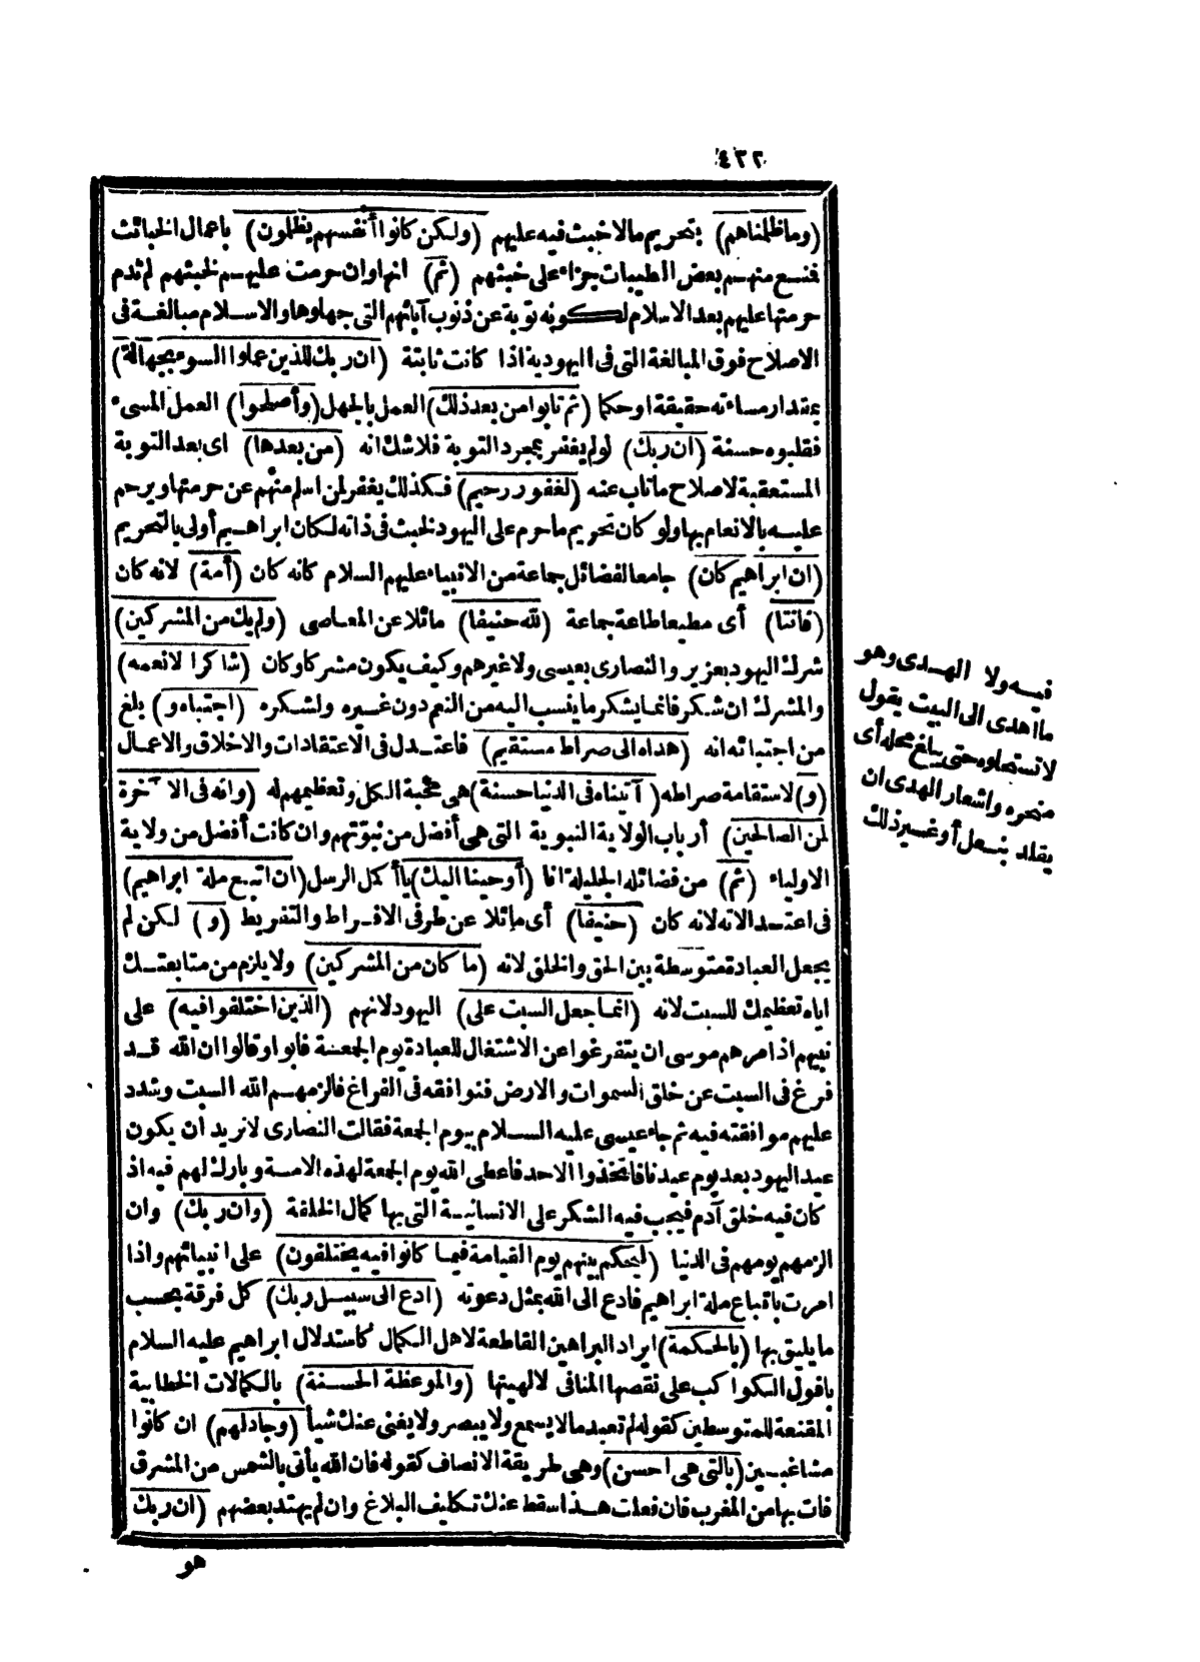 ٤٢٢
(وما ظلمناهم) بتحريم ما لا خبث فيه عليهم (ولكن كانوا أنفسهم يظلمون) باعمال الخبائث
فنع منهم بعض الطيبات جزاء على خبثهم (ثم) انها وان حرمت عليهم لخبثهم لم تدم
حرمتها عليهم بعد الاسلام لكونه توبة عن ذنوب آبائهم التى جهلوها والاسلام مبالغة فى
الاصلاح فوق المبالغة التى فى اليهودية اذا كانت ثابتة (ان ربك للذين عملوا السوء بجهالة)
بمقدار مساءته حقيقة او حكما (ثم تابوا من بعد ذلك) العمل بالجهل (وأصلحوا) العمل المسىء
فقلبوه حسنة (ان ربك) لو لم يغفر بمجرد التوبة فلا شك انه (من بعدها) اى بعد التوبة
المستعقبة لاصلاح ما تاب عنه (لغفور رحيم) فكذلك يغفر لمن اسلم منهم عن حرمتها ويرحم
عليه بالانعام بها ولو كان تحريم ما حرم على اليهود لخبث فى ذاته لكان ابراهيم أولى بالتحريم
(ان ابراهيم كان) جامعا لفضائل جماعة من الانبياء عليهم السلام كانه كان (أمة) لانه كان
(قانتا) أى مطيعا طاعة جماعة (لله حنيفا) مائلا عن المعاصى (ولم يك من المشركين)
شرك اليهود بعزير والنصارى بعيسى ولا غيرهم وكيف يكون مشركا وكان (شاكرا لانعمه)
والمشرك ان شكر فانما يشكر ما ينسب اليه من النعم دون غيره ولشكره (اجتباه و) بلغ
من اجتبائه انه (هداه الى صراط مستقيم) فاعتدل فى الاعتقادات والاخلاق والاعمال
(و) لاستقامة صراطه (آتيناه فى الدنيا حسنة) هى محبة الكل وتعظيمهم له (وانه فى الآخرة
لمن الصالحين) أرباب الولاية النبوية التى هى أفضل من نبوتهم وان كانت أفضل من ولاية
الاولياء (ثم) من فضائله الجليلة انا (أوحينا اليك) يا أكمل الرسل (ان اتبع ملة ابراهيم)
فى اعتداالاته لانه كان (حنيفا) أى مائلا عن طرفى الافراط والتفريط (و) لكن لم
يجعل العبادة متوسطة بين الحق والخلق لانه (ما كان من المشركين) ولا يلزم من متابعتك
اياه تعظيمك للسبت لانه (انما جعل السبت على) اليهود لانهم (الذين اختلفوا فيه) على
نبيهم اذ امرهم موسى ان يتفرغوا عن الاشتغال للعبادة يوم الجمعة فابوا وقالوا ان الله قد
فرغ فى السبت عن خلق السموات والارض فنوافقه فى الفراغ فالزمهم الله السبت وشدد
عليهم موافقته فيه ثم جاء عيسى عليه السلام بيوم الجمعة فقالت النصارى لا نريد ان يكون
عيد اليهود بعد يوم عيدنا فاتخذوا الاحد فاعطى الله يوم الجمعة لهذه الامة وبارك لهم فيه اذ
كان فيه خلق آدم فيجب فيه الشكر على الانسانية التى بها كمال الخلقة (وان ربك) وان
الزمهم يومهم فى الدنيا (ليحكم بينهم يوم القيامة فيما كانوا فيه يختلفون) على انبيائهم واذا
امرت باتباع ملة ابراهيم فادع الى الله بمثل دعوته (ادع الى سبيل ربك) كل فرقة بحسب
ما يليق بها (بالحكمة) ايراد البراهين القاطعة لاهل الكمال كاستدلال ابراهيم عليه السلام
بافول الكواكب على نقصها المنافى لالهيتها (والموعظة الحسنة) بالكمالات الخطابية
المقنعة للمتوسطين كقوله لم تعبد ما لا يسمع ولا يبصر ولا يغنى عنك شيأ (وجادلهم) ان كانوا
مشاغبين (بالتى هى احسن) وهى طريقة الانصاف كقوله فان الله يأتى بالشمس من المشرق
فات بها من المغرب فان فعلت هذا سقط عنك تكليف البلاغ وان لم يهتد بعضهم (ان ربك
هو
فيه ولا الهدى وهو
ما اهدى الى البيت يقول
لا تستحلوه حتى يبلغ محله أى
منحره واشعار الهدى ان
يقلد بنعل أو غير ذلك